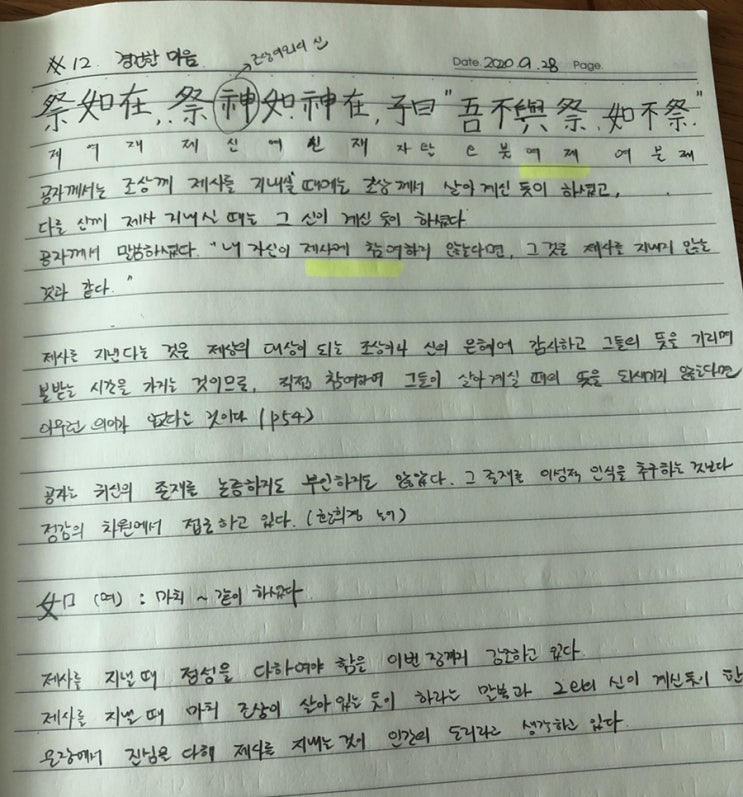 # 12. 경건한 마음.
조상이외의 신
Date. 2020. 9. 28 Page.
祭如在, 祭神如神在, 子曰 "吾不與祭, 如不祭."
제 여 재 제 신 여 신 재 자 왈 오 불 여 제 여 불 제
공자께서는 조상께 제사를 지내실 때에는 조상께서 살아 계신 듯이 하셨고,
다른 신께 제사 지내실 때는 그 신이 계신 듯이 하셨다.
공자께서 말씀하셨다. "내 자신이 제사에 참여하지 않는다면, 그것은 제사를 지내지 않는
것과 같다."
제사를 지낸다는 것은 제상의 대상이 되는 조상이나 신의 은혜에 감사하고 그들의 뜻을 기리며
본받는 시간을 가지는 것이므로, 직접 참여하여 그들이 살아계실 때의 뜻을 되새기지 않는다면
아무런 의미가 없다는 것이다 (p54)
공자는 귀신의 존재를 논증하지도 부인하지도 않았다. 그 존재를 이성적 인식을 추구하는 것보다
정감의 차원에서 접근하고 있다. (한희경 논어)
如 (여) : 마치 ~ 같이 하셨다
제사를 지낼 때 정성을 다하여야 함은 이번 장까지 강조하고 있다.
제사를 지낼 때 마치 조상이 살아 있는 듯이 하라는 말씀과 그외의 신이 계신듯이 한
문장에서 진심을 다해 제사를 지내는 것이 인간의 도리라고 생각하고 있다.